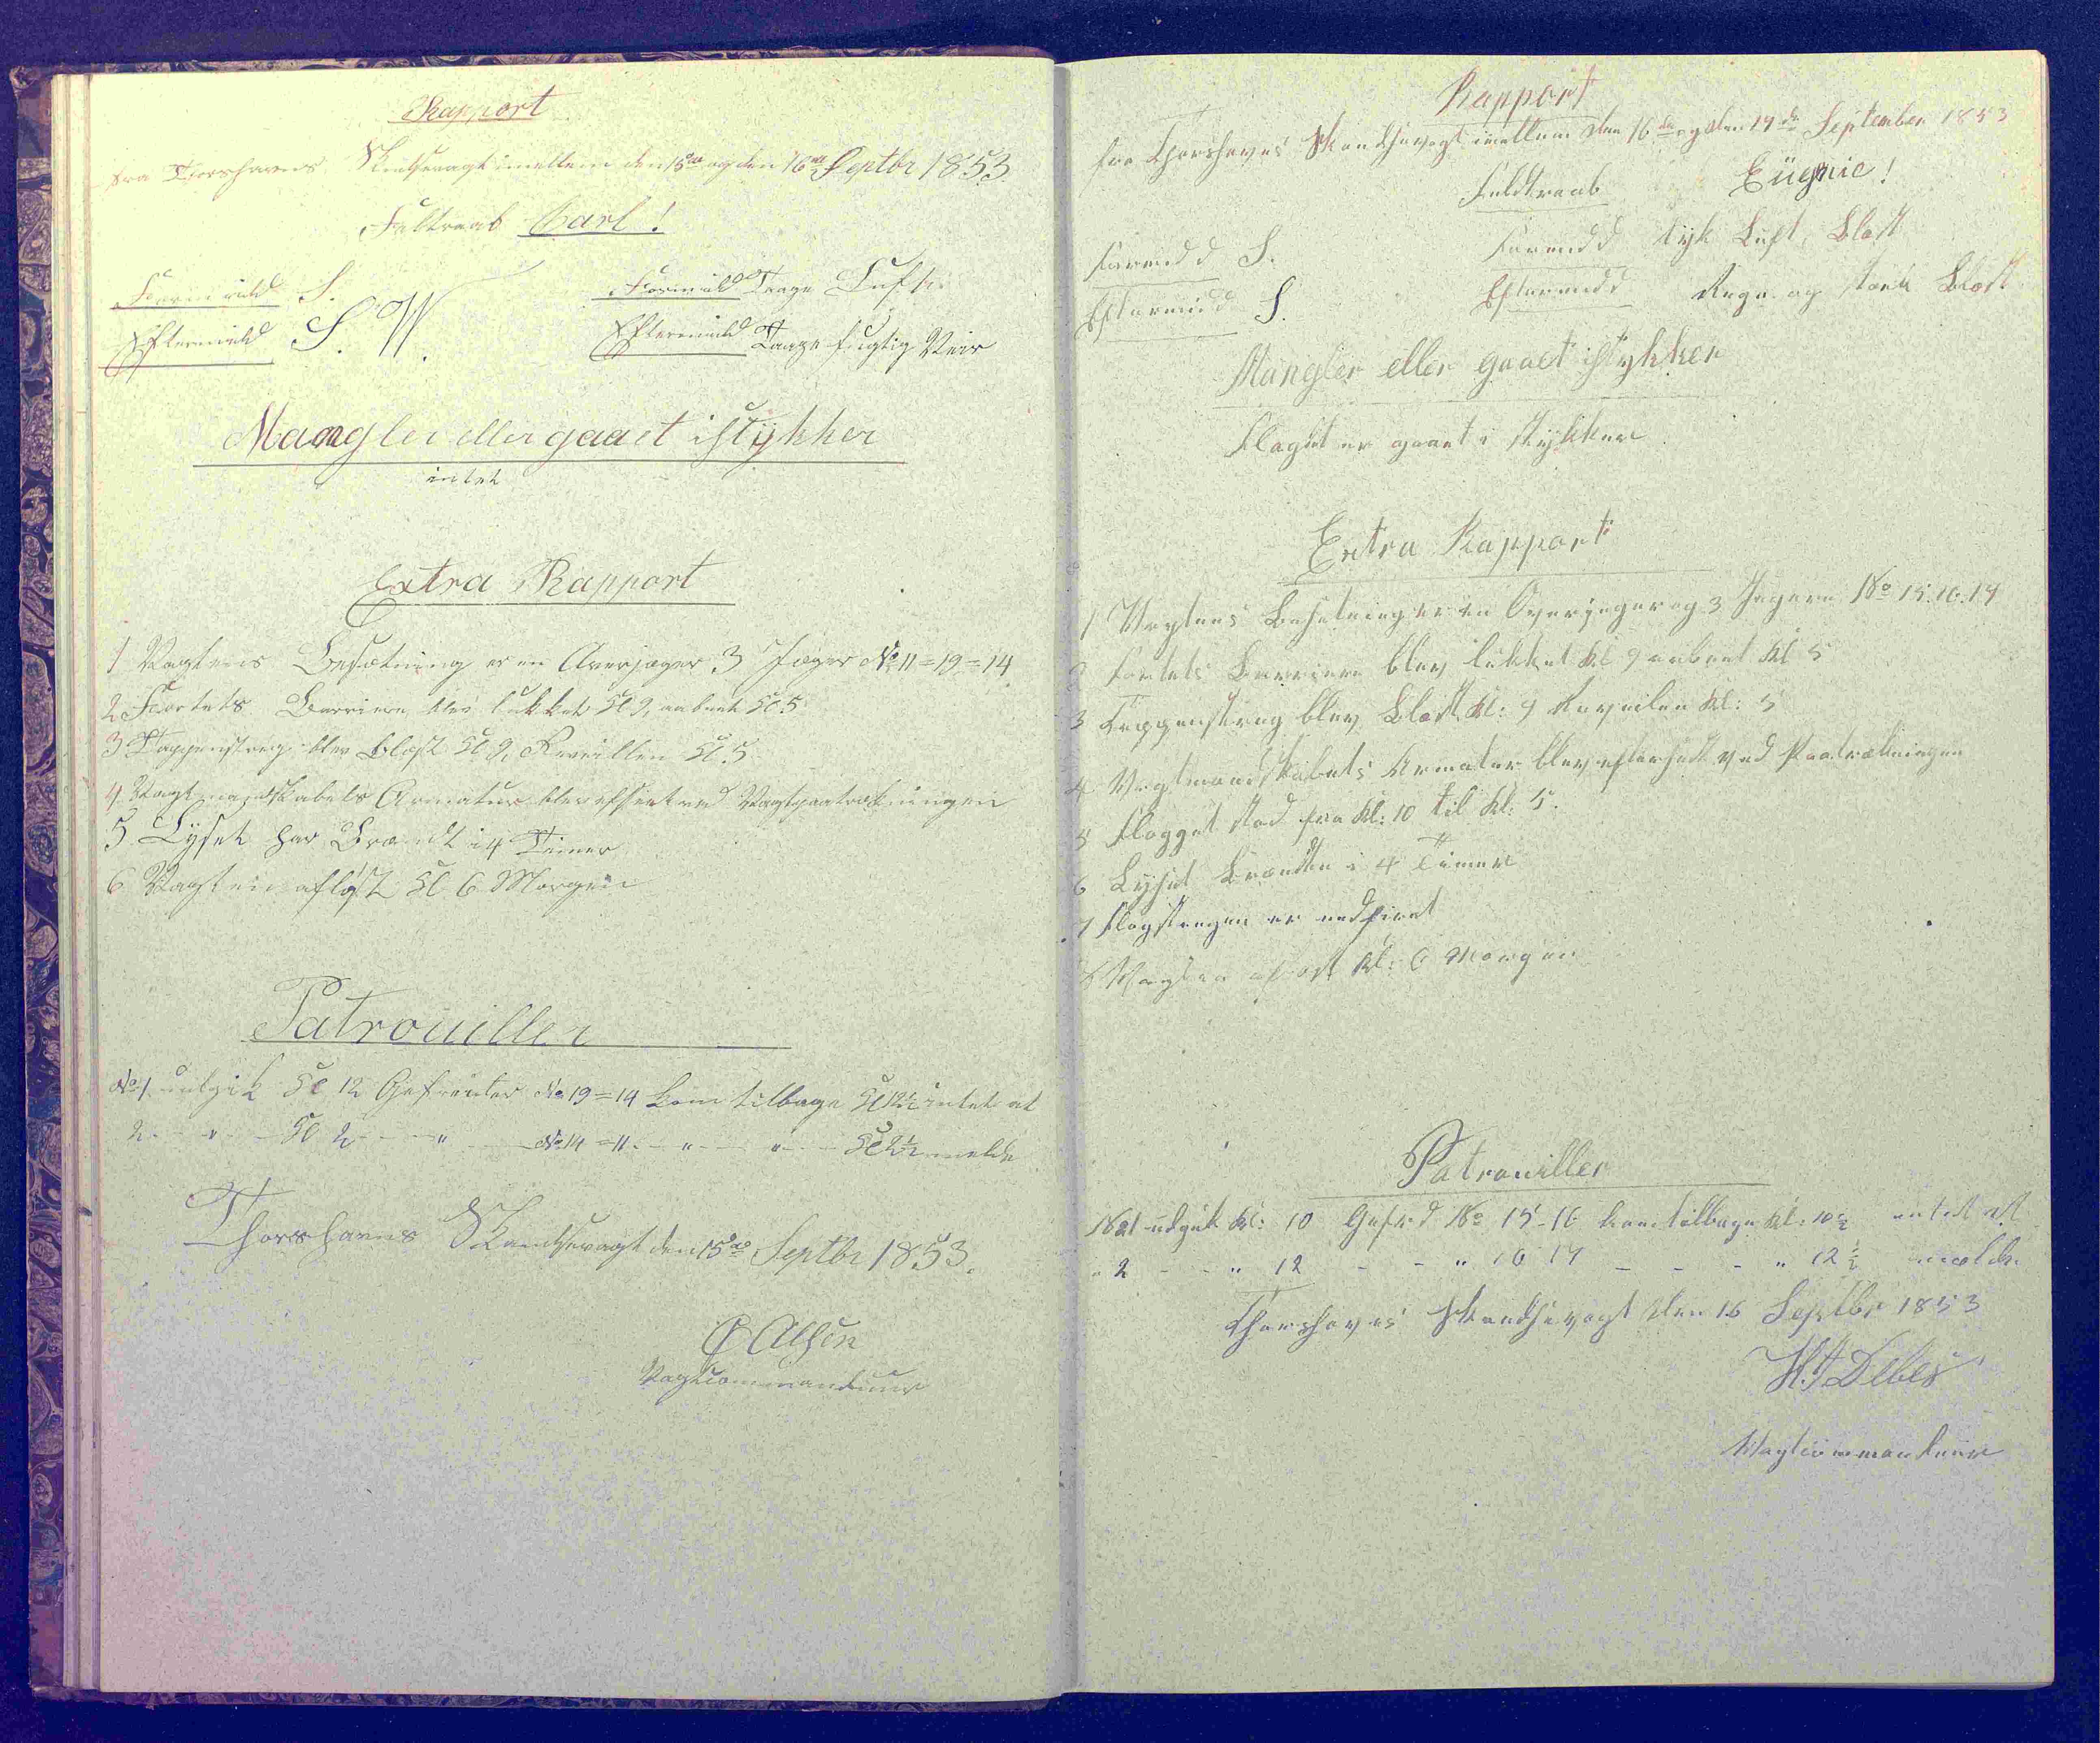 Rapport
fra Thorshavns Skandsevagt imellem den 15de og den 16de Septbr 1853.
Feltraab Carl!
Formidd S.
Formidd Taage Luft
Eftermidd S. W.
Eftermidd Taage fugtig Veir
Mangler eller gaaet istykker
intet
Extra Rapport
1 Vagtens Besætning er en Overjæger 3 Jæger No 11=19=14
2 Fortets Barriere blev lukket Kl 9, aabnet Kl 5
3 Tappenstreg blev blæst Kl 9, Reveillen Kl. 5
4 Vagtmandskabets Armatur blev efterseet ved Vagtpaatrækningen
5 Lyset har Brændt i 4 Timer
6 Vagten afløst Kl 6 Morgen
Patrouiller
No 1 udgik Kl 12 Gefreider No 19=14 kom tilbage Kl 12½ intet at
2 - " - Kl 2 - - " - No 14=11 - " - " - Kl 2½ melde
Thorshavns Skandsevagt den 15de Septbr 1853.
Olsen
Vagtcommandeur
Rapport
fra Thorshavns Skandsevagt imellem den 16de og den 17de September 1853
Feldtraab Eügnie!
Formidd S.
Formidd tyk Luft, Blæst
Eftermidd S.
Eftermidd Regn og stærk Blæst
Mangler eller gaaet istykker
Flaget er gaaet i stykker
Extra Rapport
1 Vagtens Besætning er en Overjæger og 3 Jægere No 15.16.17
2 Fortets Barriere blev lukket Kl 9 aabnet Kl 5
3 Tappenstreg blev Blæst Kl: 9 Reveilen Kl: 5
4 Vagtmandskabets Armatur blev efterseet ved Paatrækningen
5 Flagget stod fra Kl: 10 til Kl: 5.
6 Lyset brændte i 4 Timer
7 Flagstangen er nedfiret
8 Vagten afløst Kl: 6 Morgen
Patrouiller
No 1 udgik Kl: 10 Gefrd No 15-16 kom tilbage Kl: 10½ intet at
" 2 - - " 12 - - " 16 17 - - - " 12½ melde
Thorshavns Skandsevagt den 16 Septbr 1853
Debes
Vagtcommandeur